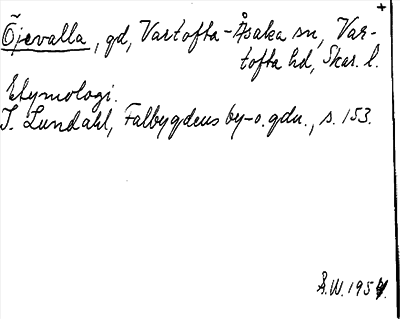 +
Õjevalla, gd, Vartofta-Åsaka sn, Var-
tofta hd, Skar. l.
Etymologi.
I. Lundahl, Falbygdens by-o.gdn., s. 153.
Å.W.1954.